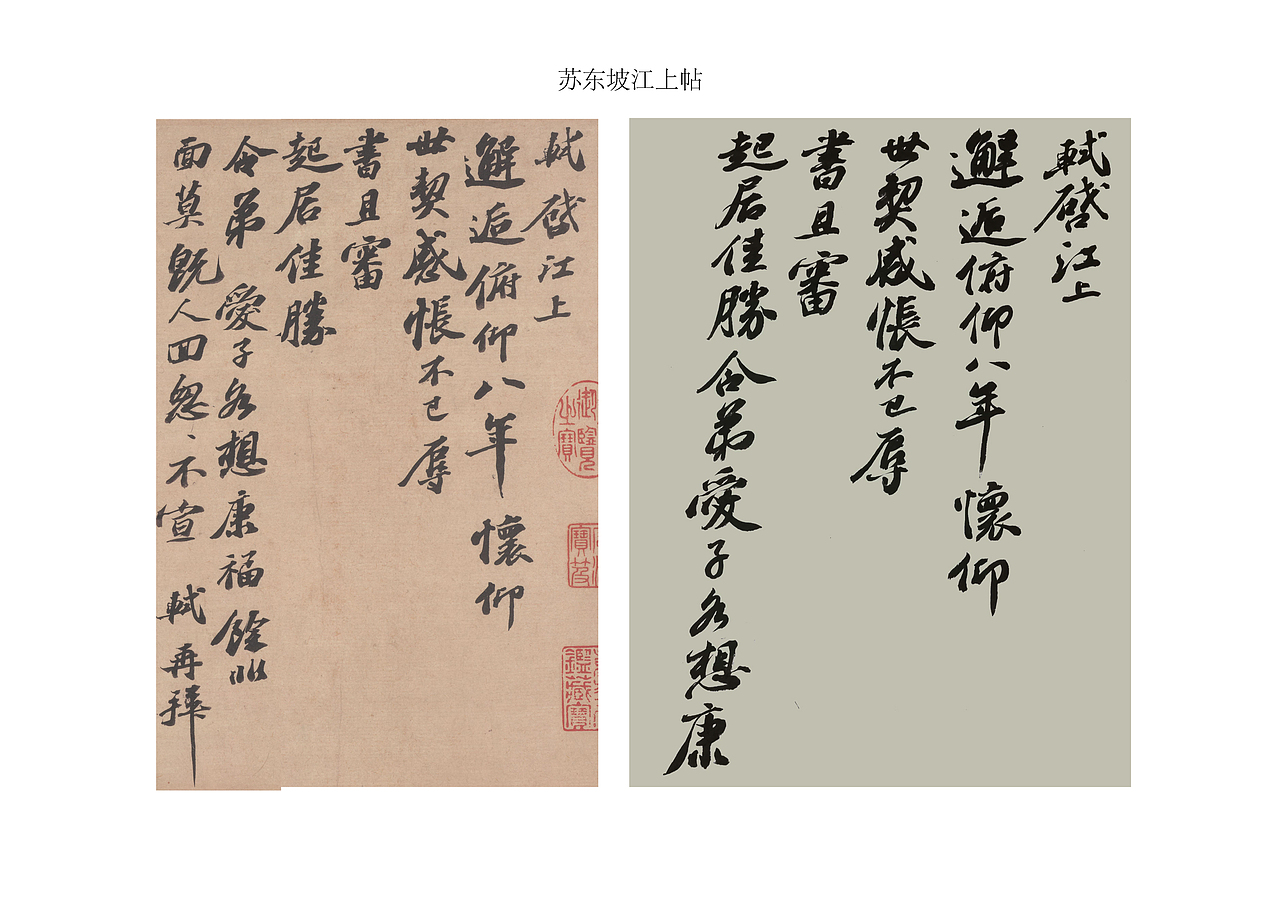 苏东坡江上帖
軾啓江上
邂逅俯仰八年懷仰
世契感悵不已辱
書且審
起居佳勝
令弟愛子各想康福餘非
面莫既人回怱〻不宣軾再拜
御覽
之寶
寶笈
鑑藏寶
軾啓江上
邂逅俯仰八年懷仰
世契感悵不已辱
書且審
起居佳勝令弟愛子各想康